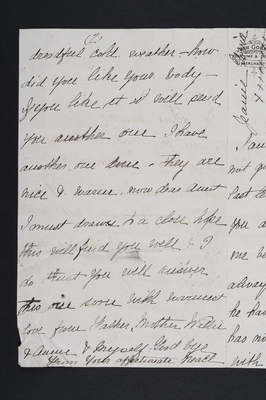 (2)
dreadful cold weather – how
did you like your body –
if you like it I will send
you another one I have
another one done – they are
nice & warm, now dear Aunt
I must draw to a close hope
this will find you well & I
do trust you will answer
this one soon with warmest
love from Father, Mother Willie
& Annie & Myself. Good bye
from Your affectionate
Jeanie
I am
not g
last le
you a
me h
alway
he ha
has no
with